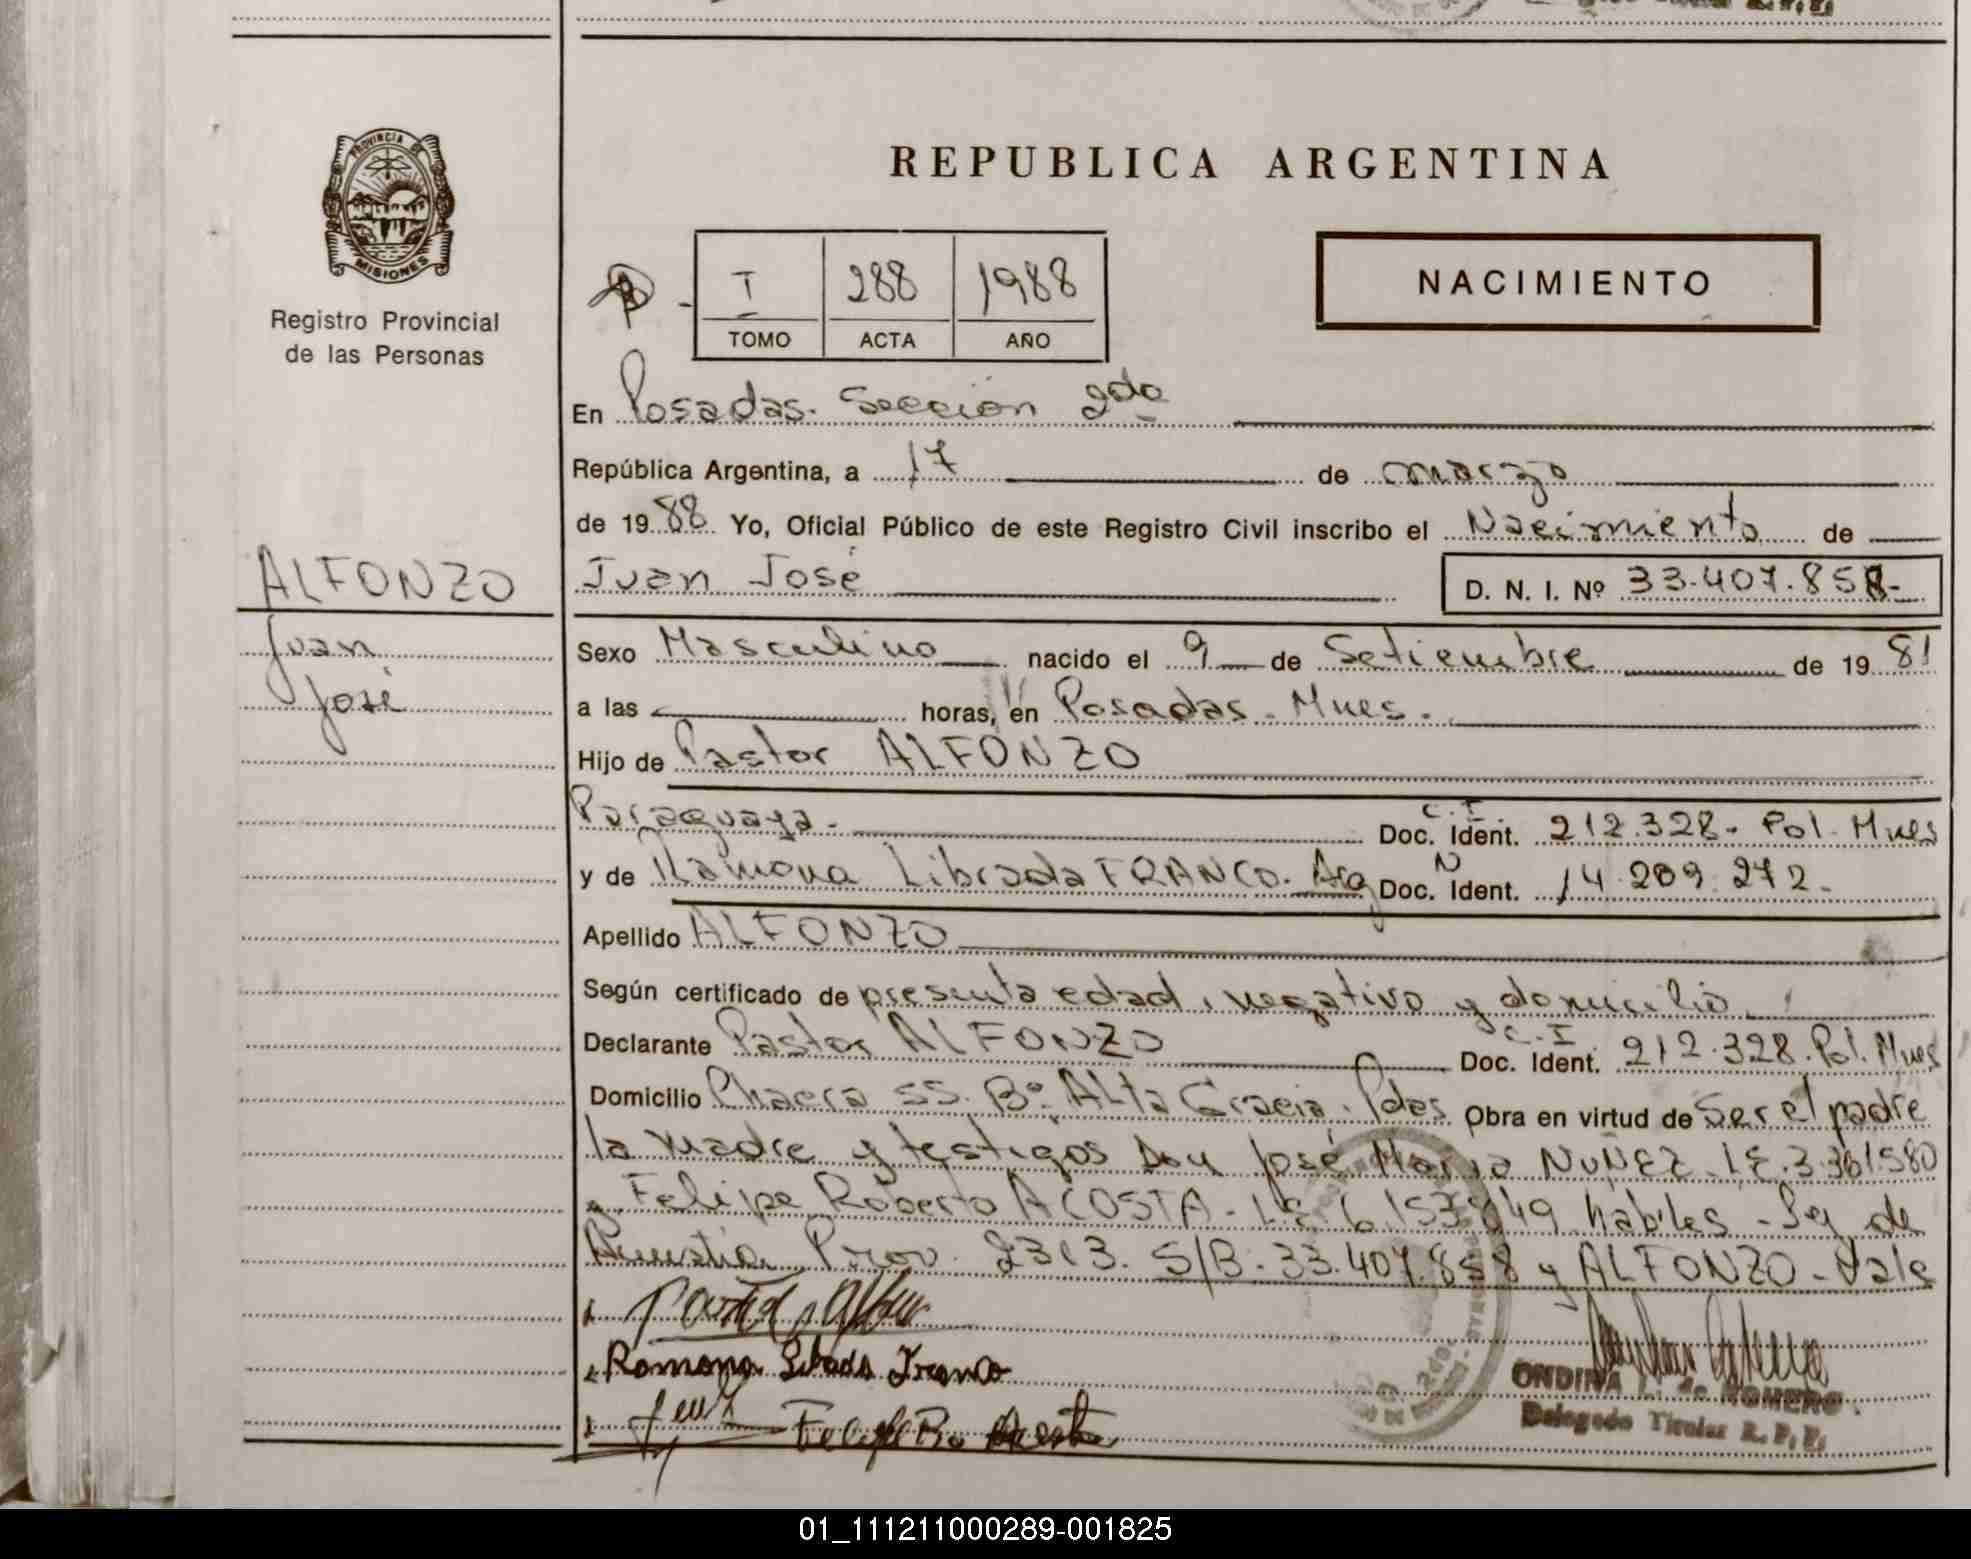 PROVINCIA DE
MISIONES
Registro Provincial
de las Personas
REPUBLICA ARGENTINA
I 288 1988
TOMO ACTA AÑO
NACIMIENTO
En Posadas. Sección 2da
República Argentina, a 17 de marzo
de 1988 Yo, Oficial Público de este Registro Civil inscribo el Nacimiento de
ALFONZO
Juan José
D. N. I. Nº 33.407.858-
Juan
José
Sexo Masculino nacido el 9 de Setiembre de 1981
a las horas, en Posadas - Mnes.
Hijo de Pastor ALFONZO
Paraguaya. C.I. Doc. Ident. 212.328. Pol. Mnes
y de Ramona Librada FRANCO. Arg N Doc. Ident. 14.209.272.
Apellido ALFONZO
Según certificado de presunta edad, negativo y domicilio
Declarante Pastor ALFONZO C.I Doc. Ident. 212.328. Pol. Mnes
Domicilio Chacra 55. Bº. ALta Gracia. Pdas Obra en virtud de Ser el padre
la madre y testigos Don José Maria NUÑEZ. LE.3.361580
y Felipe Roberto ACOSTA - LE. 6153849 habiles - Ley de
Amnistia Prov. 2313. S/B. 33.407.858 y ALFONZO - Vale
Ramona Librada Franco
Felipe Ro Acosta
ONDINA de ROMERO
Delegado Titular R. P. P.
01_111211000289-001825